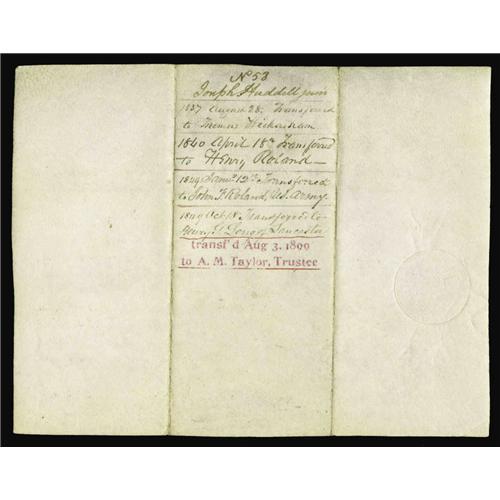 No 53
Joseph Huddell junr
1837 August 28. Transferred
to Thomas Wickersham
1840 April 18th Transferred
to Henry Roland
1849 Jany 12th Transferred
to John F. Roland, U.S. Army
1849 Oct 18 Transferred to
Henry G Long of Lancaster
transf'd Aug 3. 1899
to A. M. Taylor, Trustee